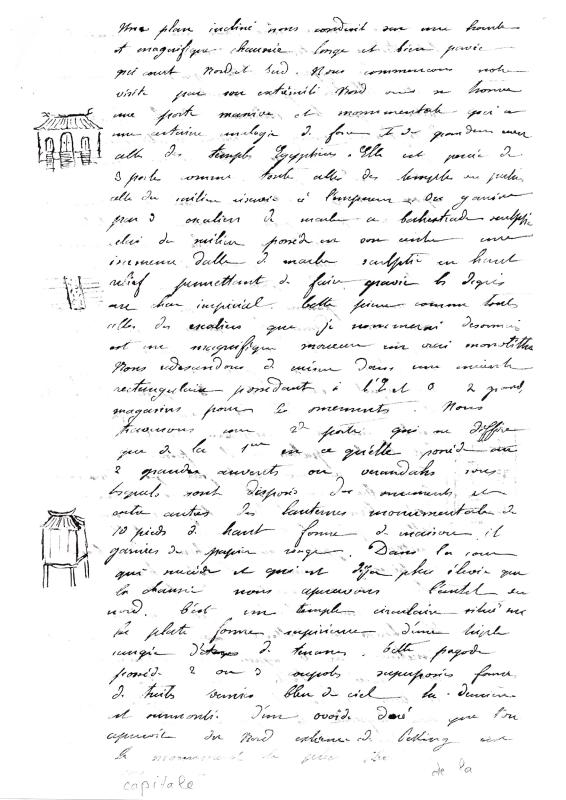 Un plan incliné nous conduit sur une haute
et magnifique chaussée longe et bien pavée
qui court Nord et Sud. Nous commencons notre
visite par son extrémité Nord où se trouve
une porte massive et monumentale qui a
une certaine analogie de forme et de grandeur avec
celle des temples Egyptiens. Elle est percée de
3 portes comme toute celles des temples ou palais
celle du milieu réservée à l'empereur. On gravit
par 3 escaliers de marbre a balustrade sculptée
celui du milieu possède en son centre une
immense dalle de marbre sculptée en haut
relief permettant de faire gravir les degrés
au char impérial. Cette pierre comme toutes
celles des escaliers que je nommerai desormais
est un magnifique morceau un vrai monolithe
Nous redescendons de même dans une enceinte
rectangulaire possédant à l'E et O 2 grands
magasins pour les ornements. Nous
traversons une 2e porte qui ne diffère
que de la 1ère en ce qu'elle possède
2 grandes auvents ou verandahs sous
lesquels sont disposés des ornements et
entre autres des lanternes monumentales de
10 pieds de haut forme de maison, et
garnies de papier rouge. Dans la cour
qui succède et qui est déjà plus élevée que
la chaussée nous apercevons l'autel du
nord. C'est un temple circulaire situé sur
la plate forme supérieure d'une triple
rangée de terrasses. Cette pagode
possède 2 ou 3 superposés forme
de toits vernis bleu de ciel la dernière
est surmontée d'un ovoïde doré que l'on
aperçoit du Nord extreme de Petking
le monument le plus de la
capitale